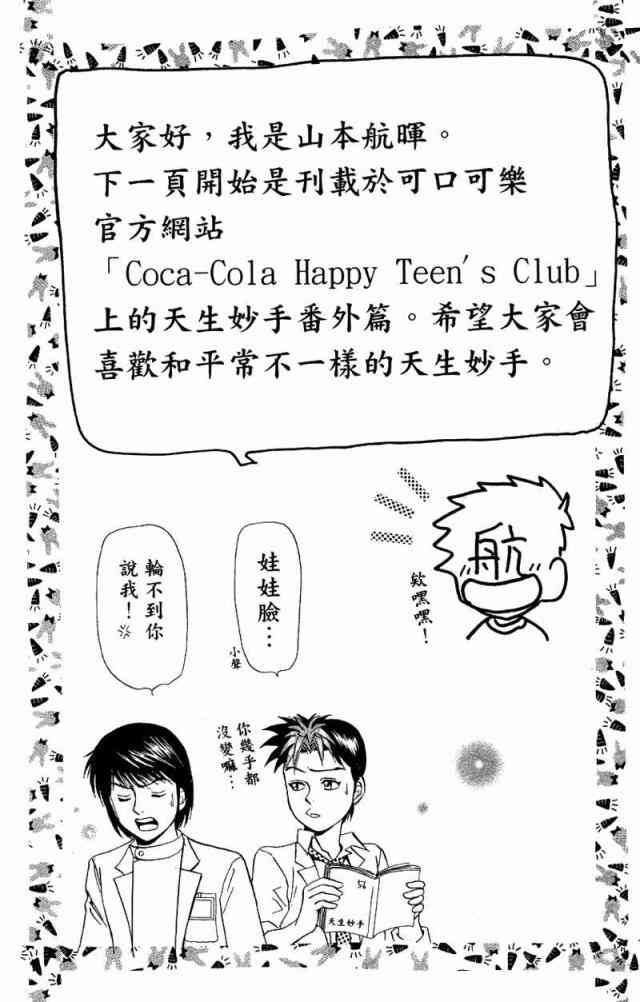 大家好，我是山本航暉。
下一頁開始是刊載於可口可樂
官方網站
「Coca-Cola Happy Teen's Club」
上的天生妙手番外篇。希望大家會
喜歡和平常不一樣的天生妙手。
航
欸嘿嘿！
娃娃臉…
小聲
輪不到你
說我！
你幾乎都
沒變嘛…
天生妙手